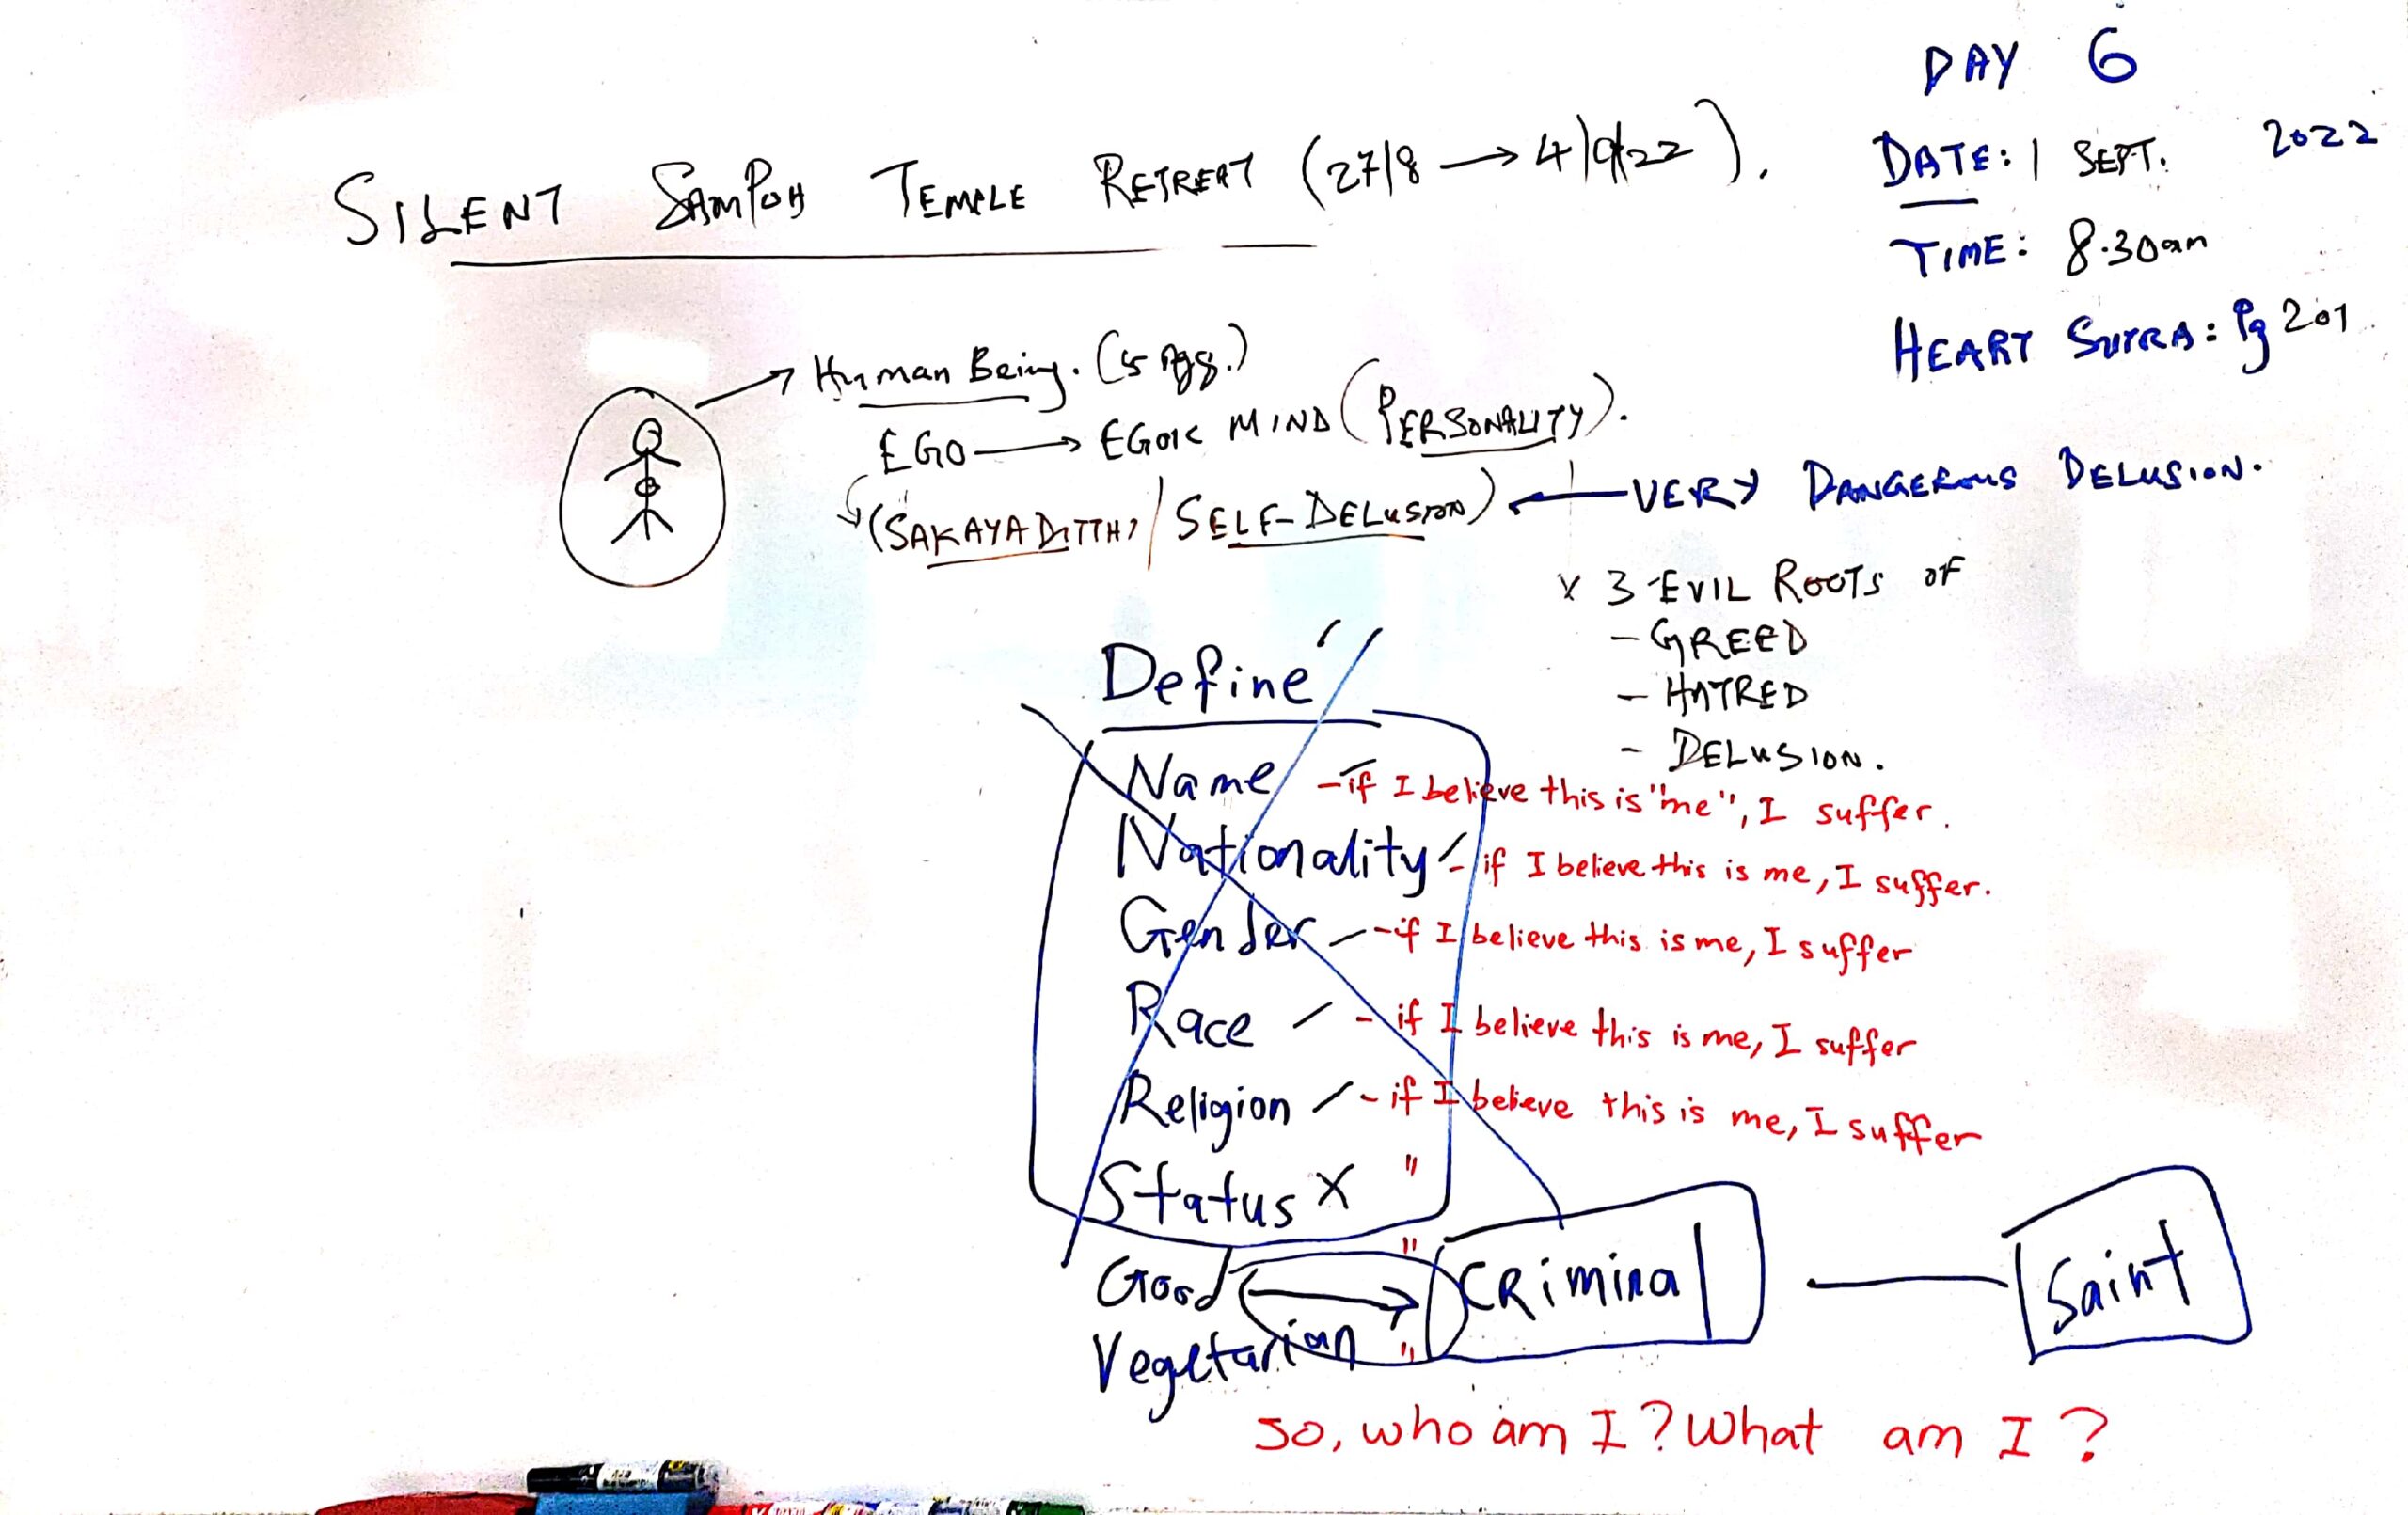 DAY 6
DATE: 1 SEPT. 2022
TIME: 8.30am
HEART SUTRA: Pg 201
SILENT SAMPOH TEMPLE RETREAT (27/8 → 4/9/22).
Human Being. (5 Agg.)
EGO → EGOIC MIND (PERSONALITY).
(SAKAYADITTHI / SELF-DELUSION) ← VERY DANGEROUS DELUSION.
x 3 EVIL ROOTS OF
- GREED
- HATRED
- DELUSION.
Define
Name - if I believe this is "me", I suffer.
Nationality - if I believe this is me, I suffer.
Gender - if I believe this is me, I suffer
Race - if I believe this is me, I suffer
Religion - if I believe this is me, I suffer
Status x "
Good → " CRiminal — Saint
Vegetarian "
So, who am I? What am I?